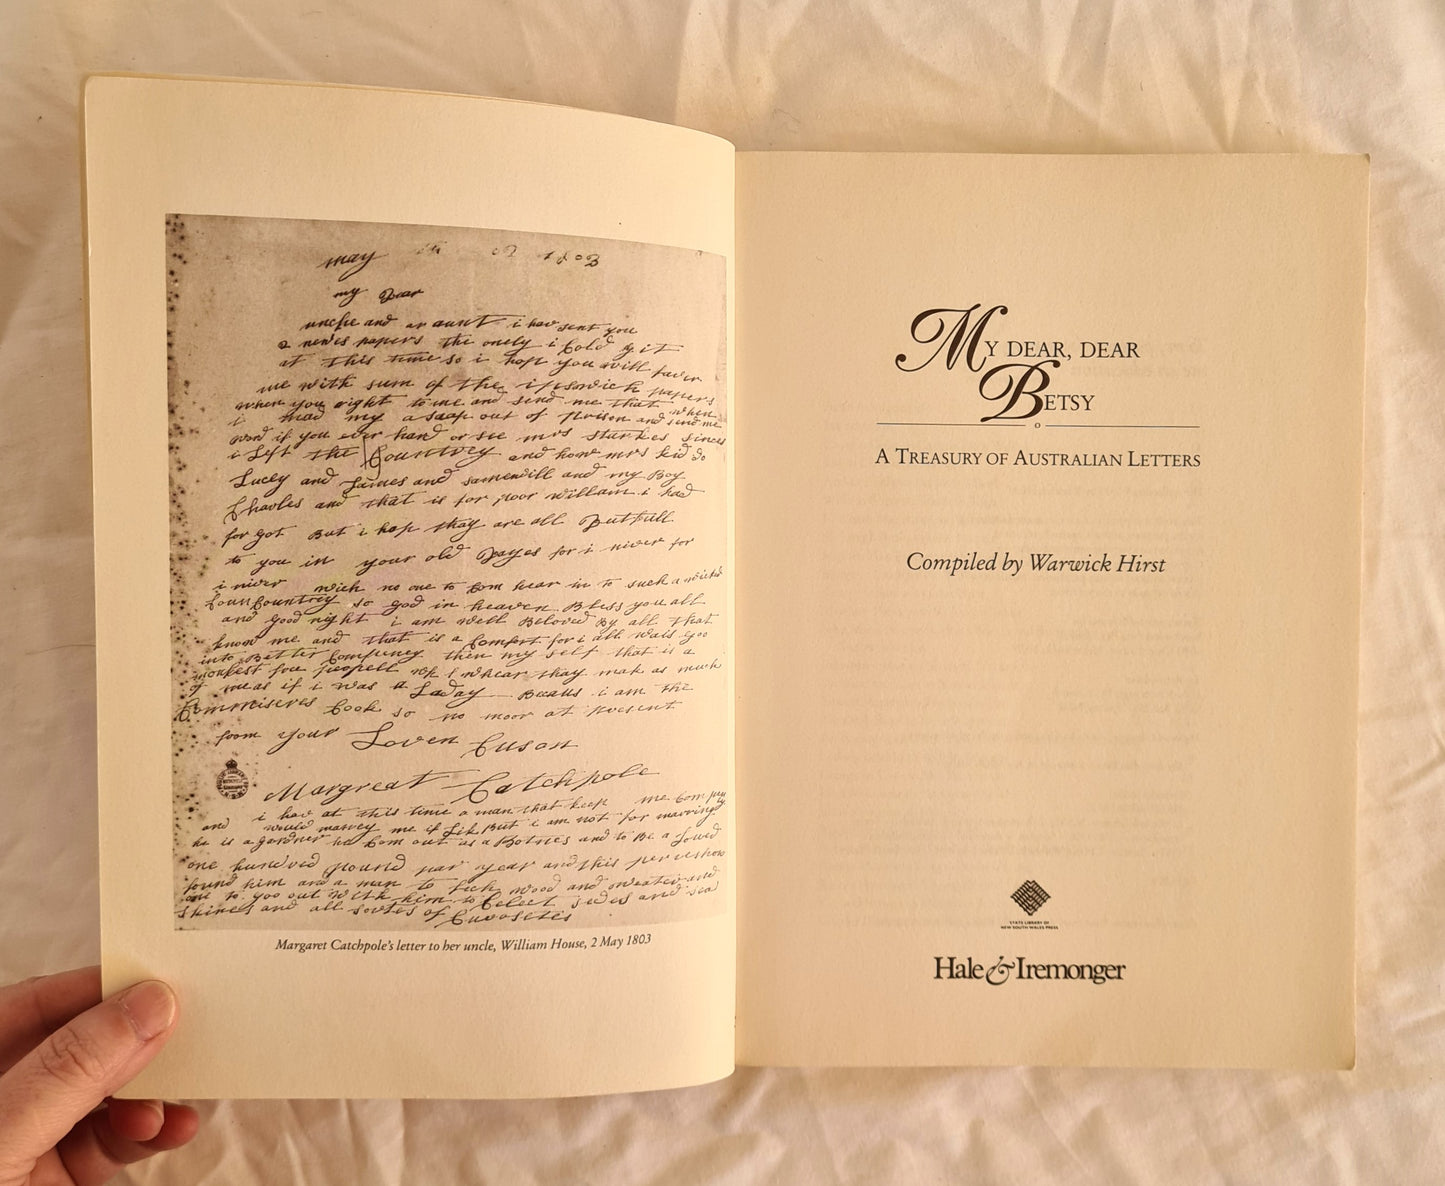 may 2 1803
my Dear
uncle and ar aunt i hav sent you
2 newes papers the onely i Cold git
at this time so i hop you will faver
me with sum of the ipswich papers
when you right to me and send me that when
i mad my a scap out of prison and send me
word if you ever hard or see mrs starkes sinces
i Left the Countrey and how mrs kid do
Lucey and James and samewill and my Boy
Charles and that is for poor william i had
for got But i hop thay are all Dutfull
to you in your old Dayes for i niver for
i niver wich no one to Com hear in to such a wicked
Countrey so god in heaven Bless you all
and good night i am well Beloved By all that
know me and that is a Comfort for i all wais goo
into Better Compuney then my self that is a
monkest free peopell whear thay mak as much
of me as if i was a Laday Becaus i am the
Commiseres Cook so no moor at present
from your Loven Cuson
Margreat Catchpole
i hav at this time a man that keep me Compny
and would marrey me if Lik But i am not for marring
he is a gardner he Com out as a Botnes and to Be a Lowed
one hundred pound par year and
found him and a man to fech wood and weater and
one to goo out with him to Celect sedes and sea
skines and all sortes of Curosetis
Margaret Catchpole's letter to her uncle, William House, 2 May 1803
MY DEAR, DEAR
BETSY
A TREASURY OF AUSTRALIAN LETTERS
Compiled by Warwick Hirst
STATE LIBRARY OF
NEW SOUTH WALES PRESS
Hale & Iremonger